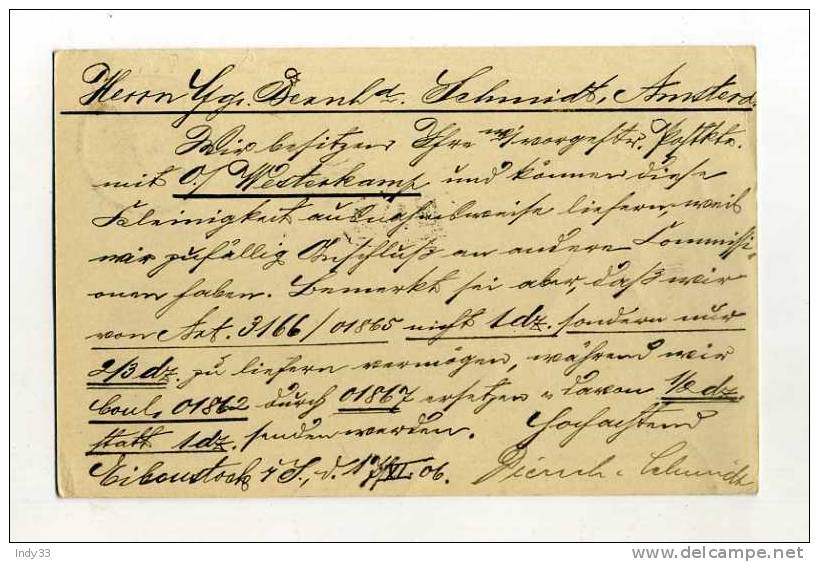 Herrn Gg. Bernhd. Schmidt, Amsterd.
Wir besitzen Ihre vorgestr. Postkte.
mit O/ Westerkamp und können diese
Kleinigkeit ausnahmsweise liefern, weil
wir zufällig Anschluß an andere Commissi-
onen haben. Bemerkt sei aber, daß wir
von Art. 3166/01865 nicht 1 dz. sondern nur
2/3 dz. zu liefern vermögen, während wir
Coul. 01862 durch 01867 ersetzen u davon 1/2 dz.
statt 1 dz. senden werden. Hochachtend
Eibenstock i/S., d. /XI. 06. Diersch & Schmidt
Indy33
www.delcampe.net